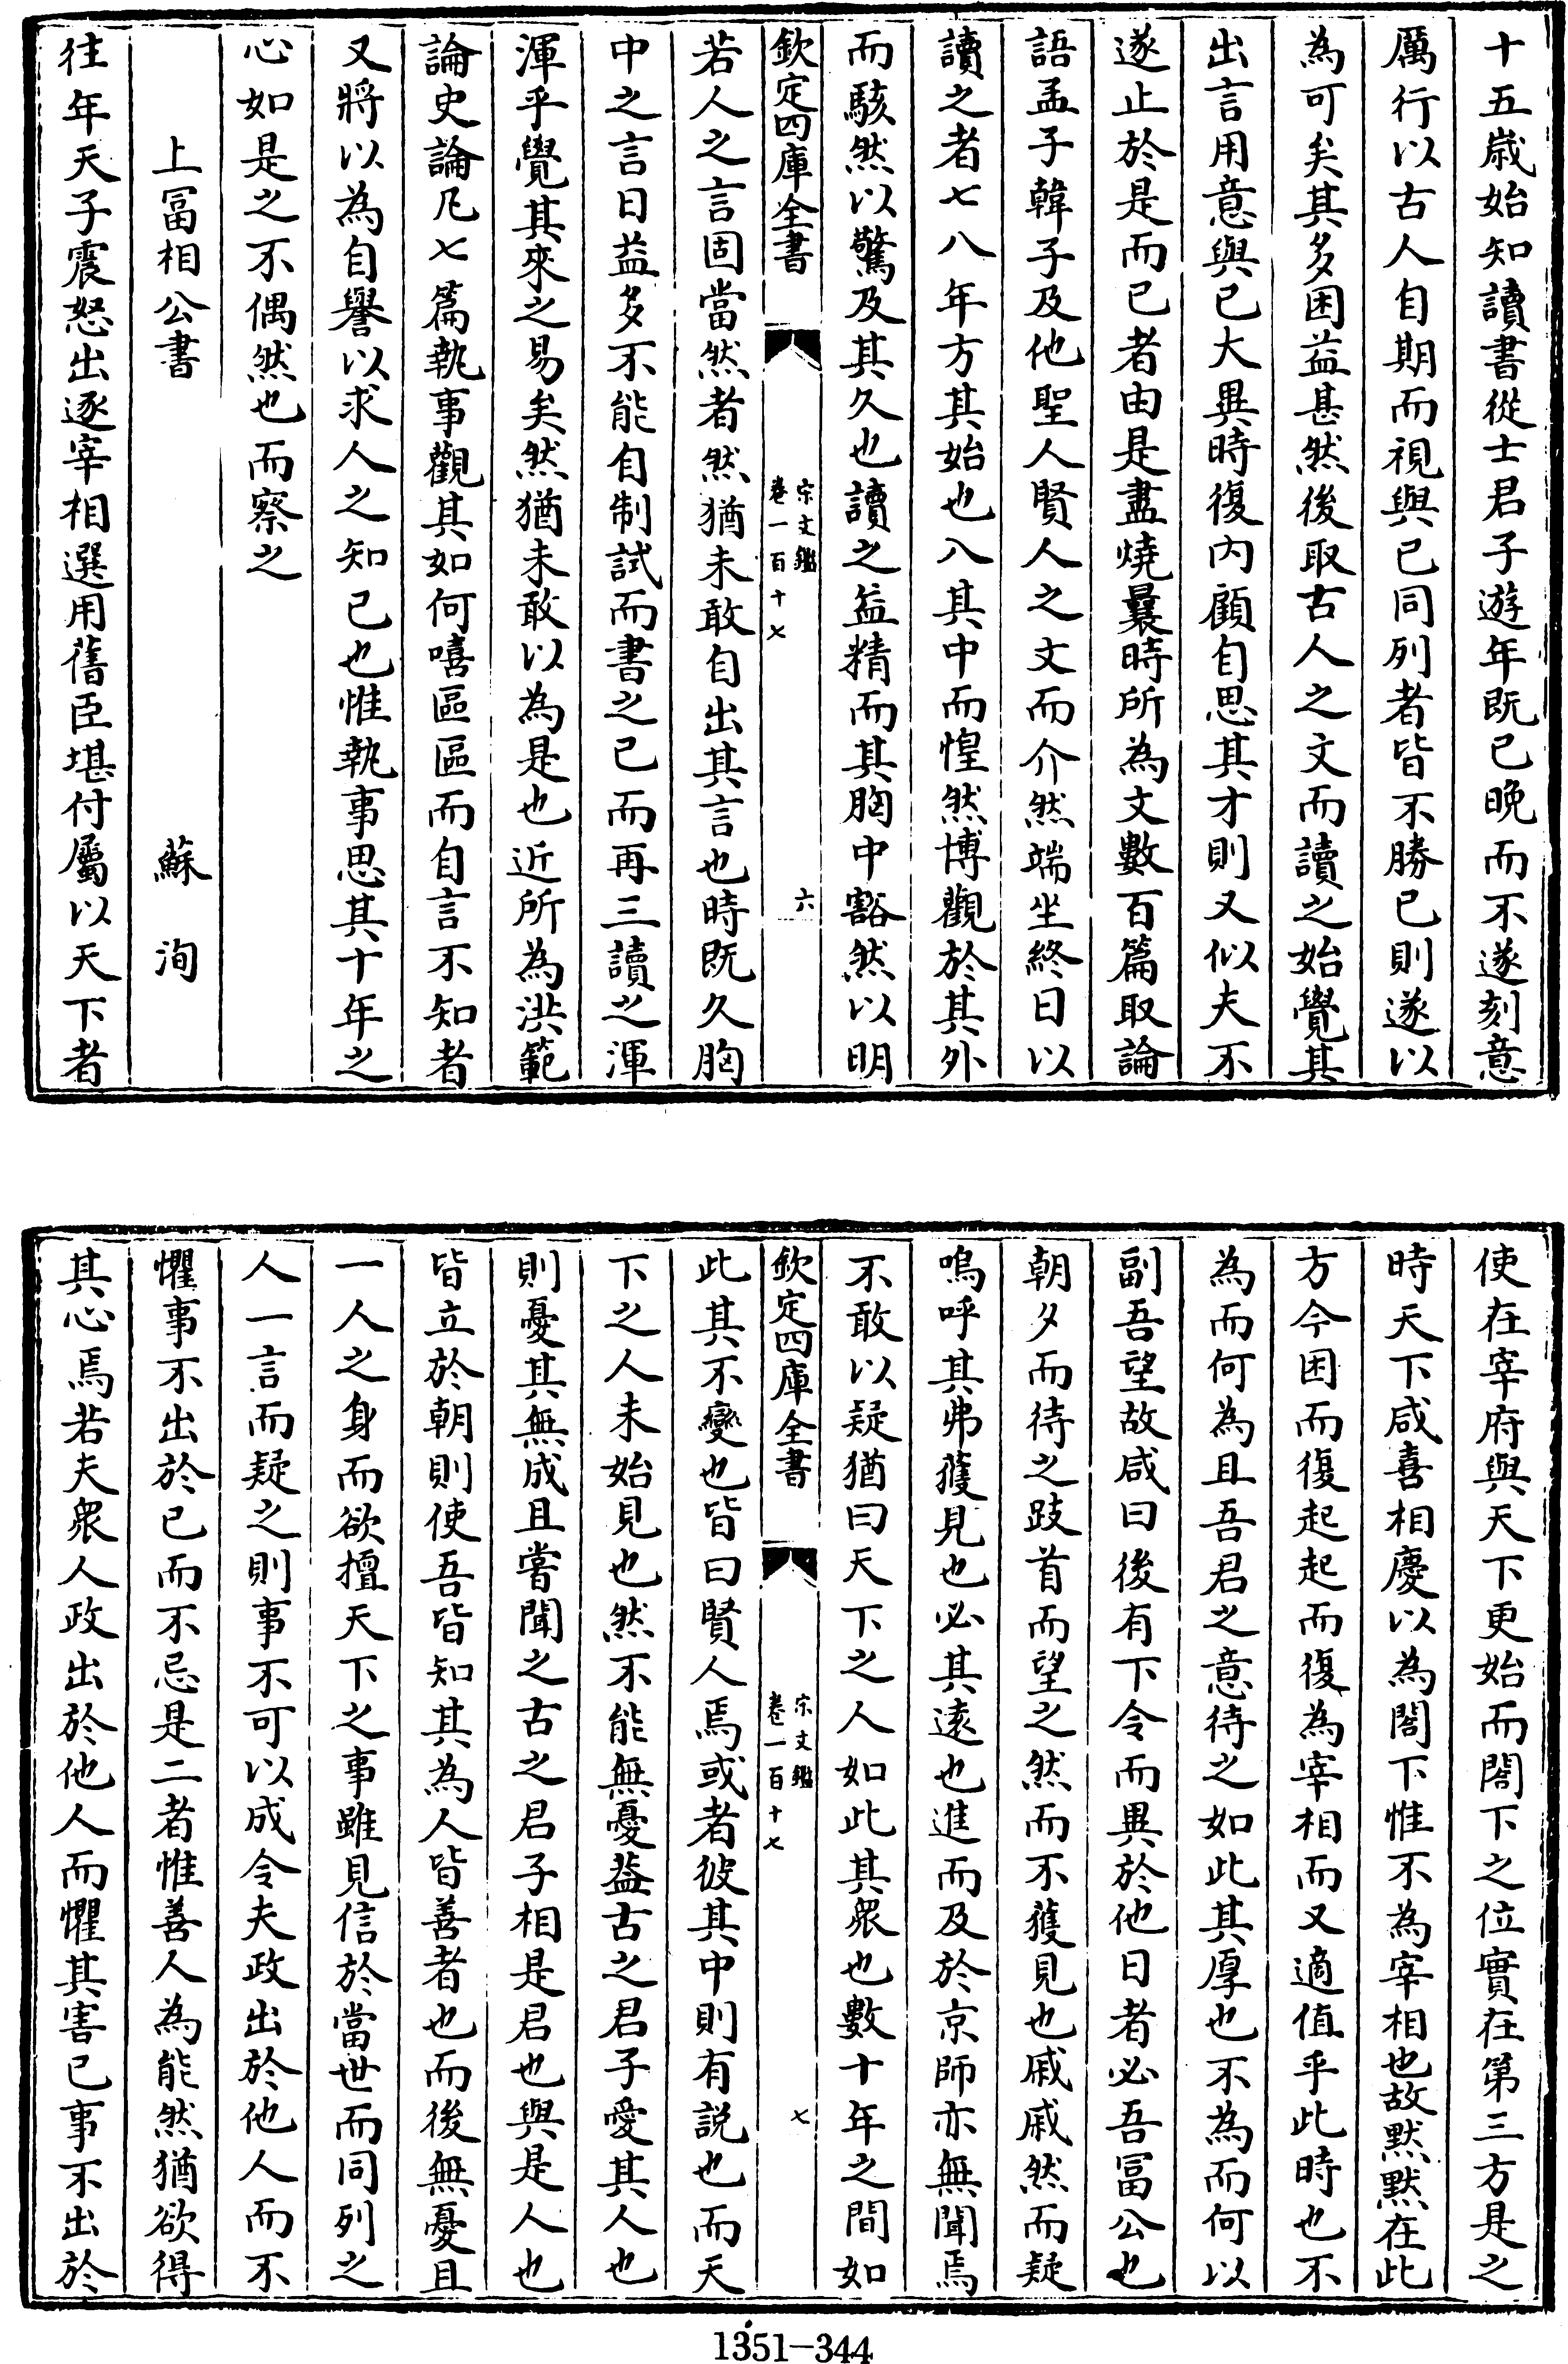 十五歳始知讀書從士君子遊年既已晚而不遂刻意
厲行以古人自期而視與已同列者皆不勝已則遂以
為可矣其多困益甚然後取古人之文而讀之始覺其
出言用意與已大異時復内顧自思其才則又似夫不
遂止於是而已者由是盡燒曩時所為文數百篇取論
語孟子韓子及他聖人賢人之文而介然端坐終日以
讀之者七八年方其始也入其中而惶然博觀於其外
而駭然以驚及其久也讀之益精而其胸中豁然以明
欽定四庫全書
宋文鑑
卷一百十七
六
若人之言固當然者然猶未敢自出其言也時既久胸
中之言日益多不能自制試而書之已而再三讀之渾
渾乎覺其來之易矣然猶未敢以為是也近所為洪範
論史論凡七篇執事觀其如何嘻區區而自言不知者
又將以為自譽以求人之知已也惟執事思其十年之
心如是之不偶然也而察之
上富相公書
蘇洵
往年天子震怒出逐宰相選用舊臣堪付屬以天下者
使在宰府與天下更始而閤下之位實在第三方是之
時天下咸喜相慶以為閤下惟不為宰相也故黙黙在此
方今困而復起起而復為宰相而又適值乎此時也不
為而何為且吾君之意待之如此其厚也不為而何以
副吾望故咸曰後有下令而異於他日者必吾富公也
朝夕而待之跂首而望之然而不獲見也戚戚然而疑
嗚呼其弗獲見也必其遠也進而及於京師亦無聞焉
不敢以疑猶曰天下之人如此其衆也數十年之間如
欽定四庫全書
宋文鑑
卷一百十七
七
此其不變也皆曰賢人焉或者彼其中則有説也而天
下之人未始見也然不能無憂葢古之君子愛其人也
則憂其無成且嘗聞之古之君子相是君也與是人也
皆立於朝則使吾皆知其為人皆善者也而後無憂且
一人之身而欲擅天下之事雖見信於當世而同列之
人一言而疑之則事不可以成令夫政出於他人而不
懼事不出於已而不忌是二者惟善人為能然猶欲得
其心焉若夫衆人政出於他人而懼其害已事不出於
1351-344